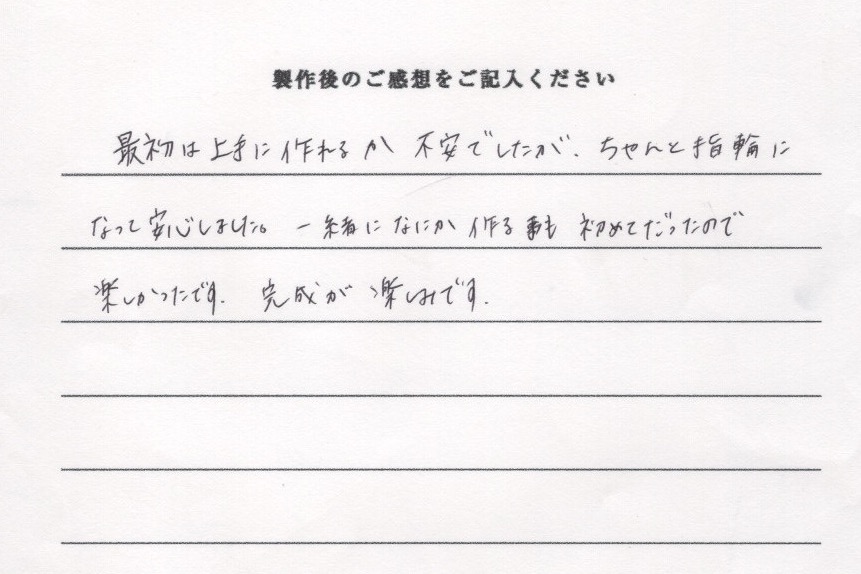 製作後のご感想をご記入ください
最初は上手に作れるか不安でしたが、ちゃんと指輪に
なって安心しました。一緒になにか作る事も初めてだったので
楽しかったです。完成が楽しみです。